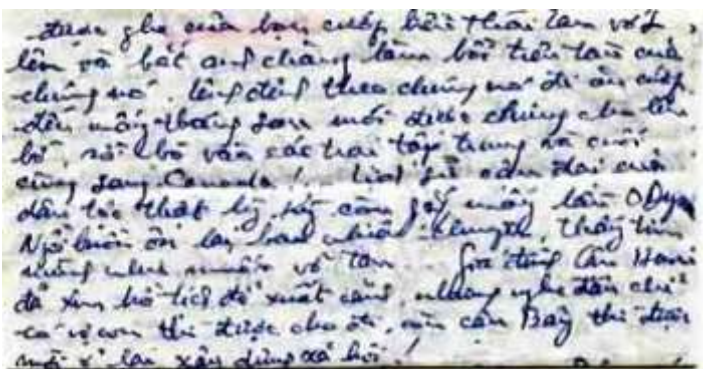 được ghe của bọn cướp biển Thái Lan vớt
lên và bắt anh chàng làm bồi trên tàu của
chúng nó, lênh đênh theo chúng nó đi ăn cướp
đến mấy tháng sau mới được chúng cho lên
bờ, rồi bò vào các trại tập trung và cuối
cùng sang Canada !... của
dân tộc thật kỳ
Ngồi buồn ôn lại bao nhiêu chuyện, thấy tim
như muốn vỡ tan. Gia đình
đã xin hộ tịch để xuất cảnh, nhưng nghe đâu chỉ
có vợ con thì được cho đi, còn cậu Bảy thì được
mời ở lại xây dựng xã hội !